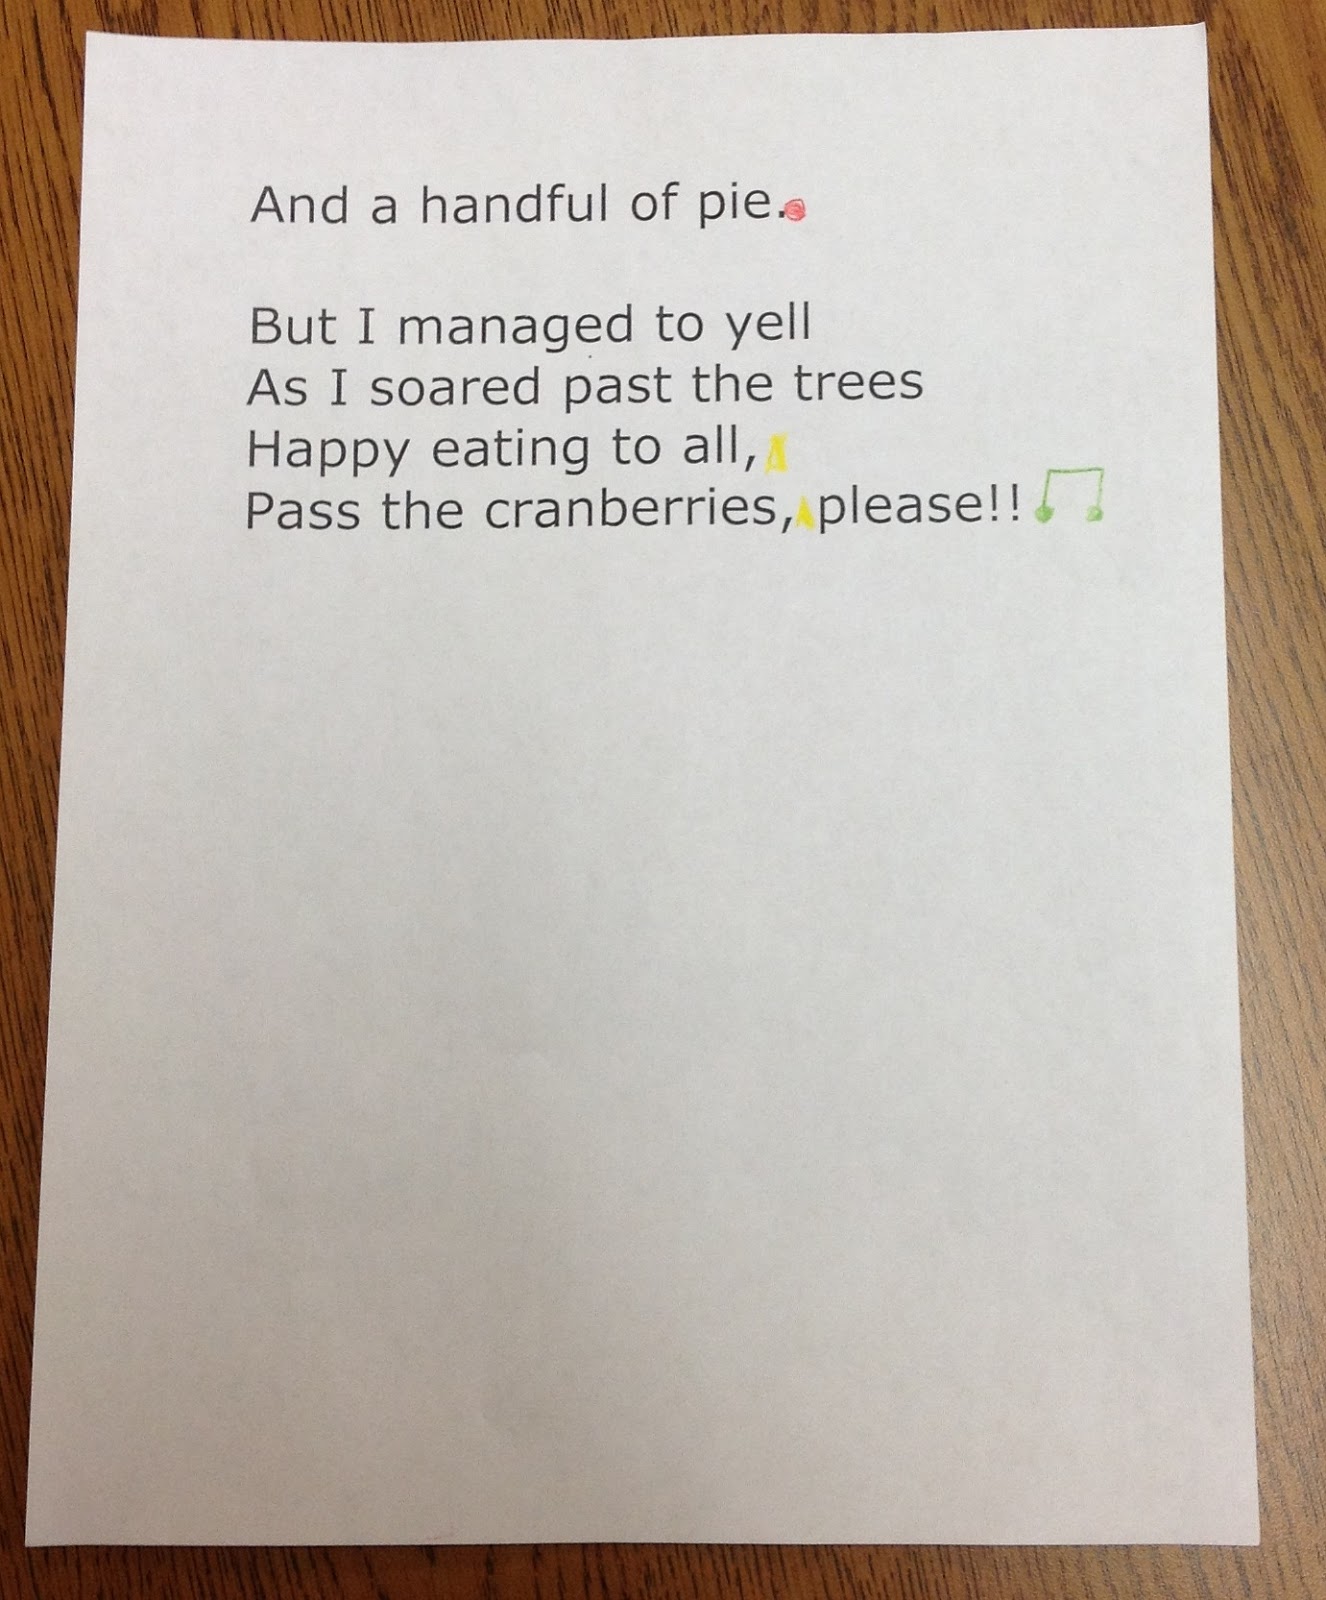 And a handful of pie.
But I managed to yell
As I soared past the trees
Happy eating to all,
Pass the cranberries, please!!